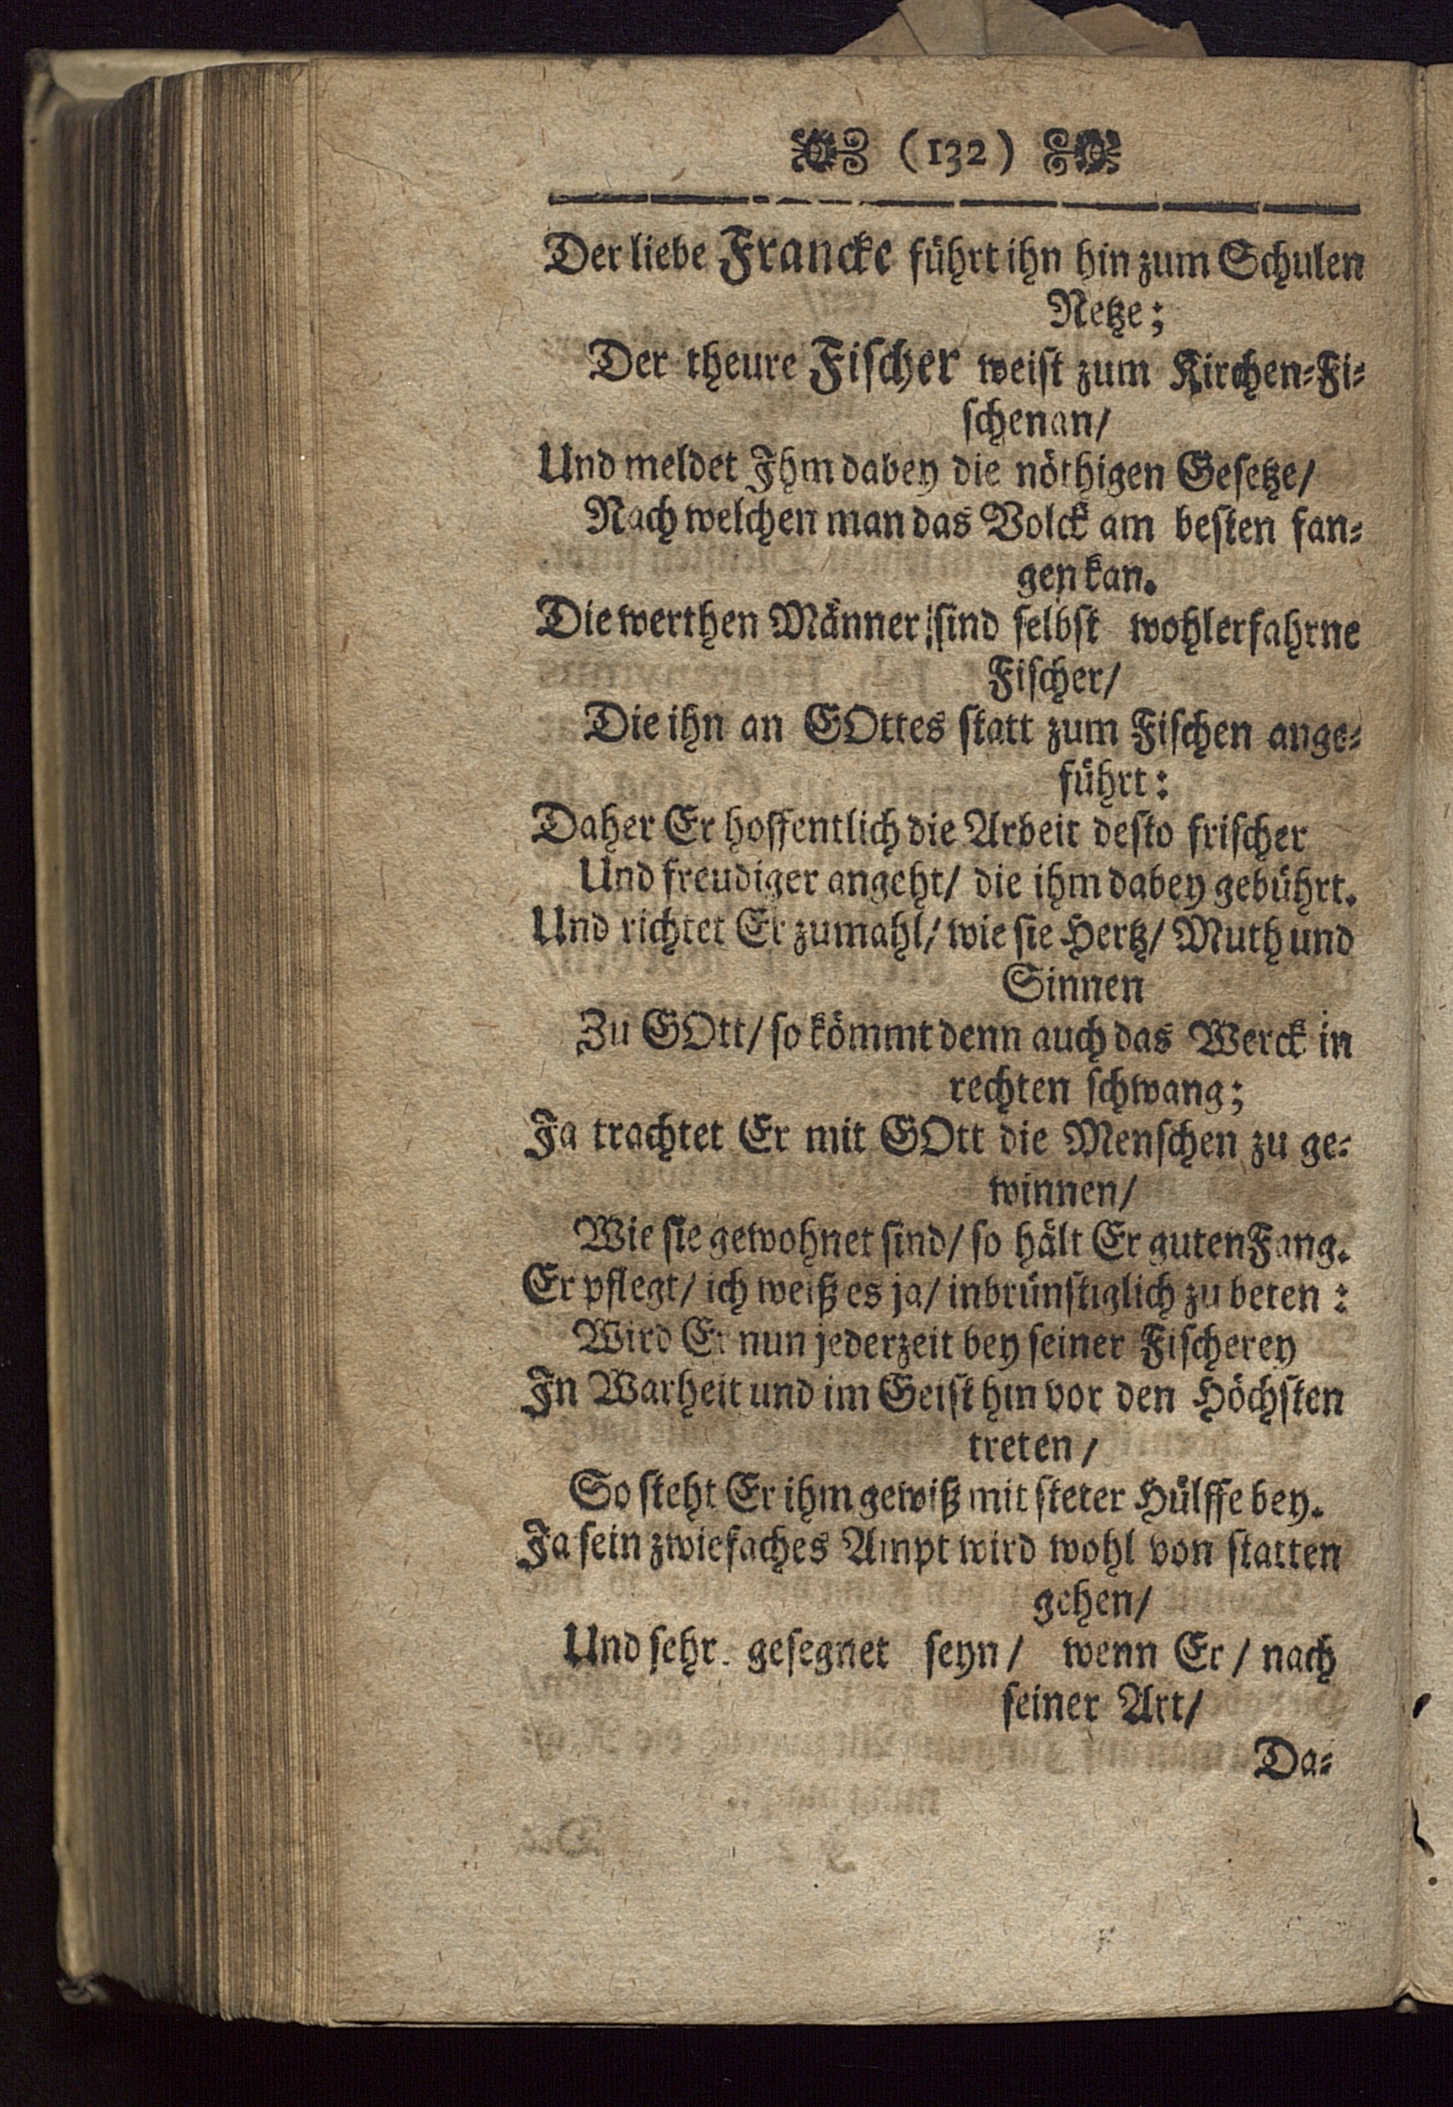 (132)
Der liebe Francke führt ihn hin zum Schulen
Netze;
Der theure Fischer weist zum Kirchen-Fi-
schen an/
Und meldet Ihm dabey die nöthigen Gesetze/
Nach welchen man das Volck am besten fan-
gen kan.
Die werthen Männer sind selbst wohlerfahrne
Fischer/
Die ihn an GOttes statt zum Fischen ange-
führt:
Daher Er hoffentlich die Arbeit desto frischer
Und freudiger angeht/ die ihm dabey gebührt.
Und richtet Er zumahl/ wie sie Hertz/ Muth und
Sinnen
Zu GOtt/ so kömmt denn auch das Werck in
rechten schwang;
Ja trachtet Er mit GOtt die Menschen zu ge-
winnen/
Wie sie gewohnet sind/ so hält Er guten Fang.
Er pflegt/ ich weiß es ja/ inbrünstiglich zu beten:
Wird Er nun jederzeit bey seiner Fischerey
In Warheit und im Geist hin vor den Höchsten
treten/
So steht Er ihm gewiß mit steter Hülffe bey.
Ja sein zwiefaches Ampt wird wohl von statten
gehen/
Und sehr gesegnet seyn/ wenn Er/ nach
seiner Art/
Da-